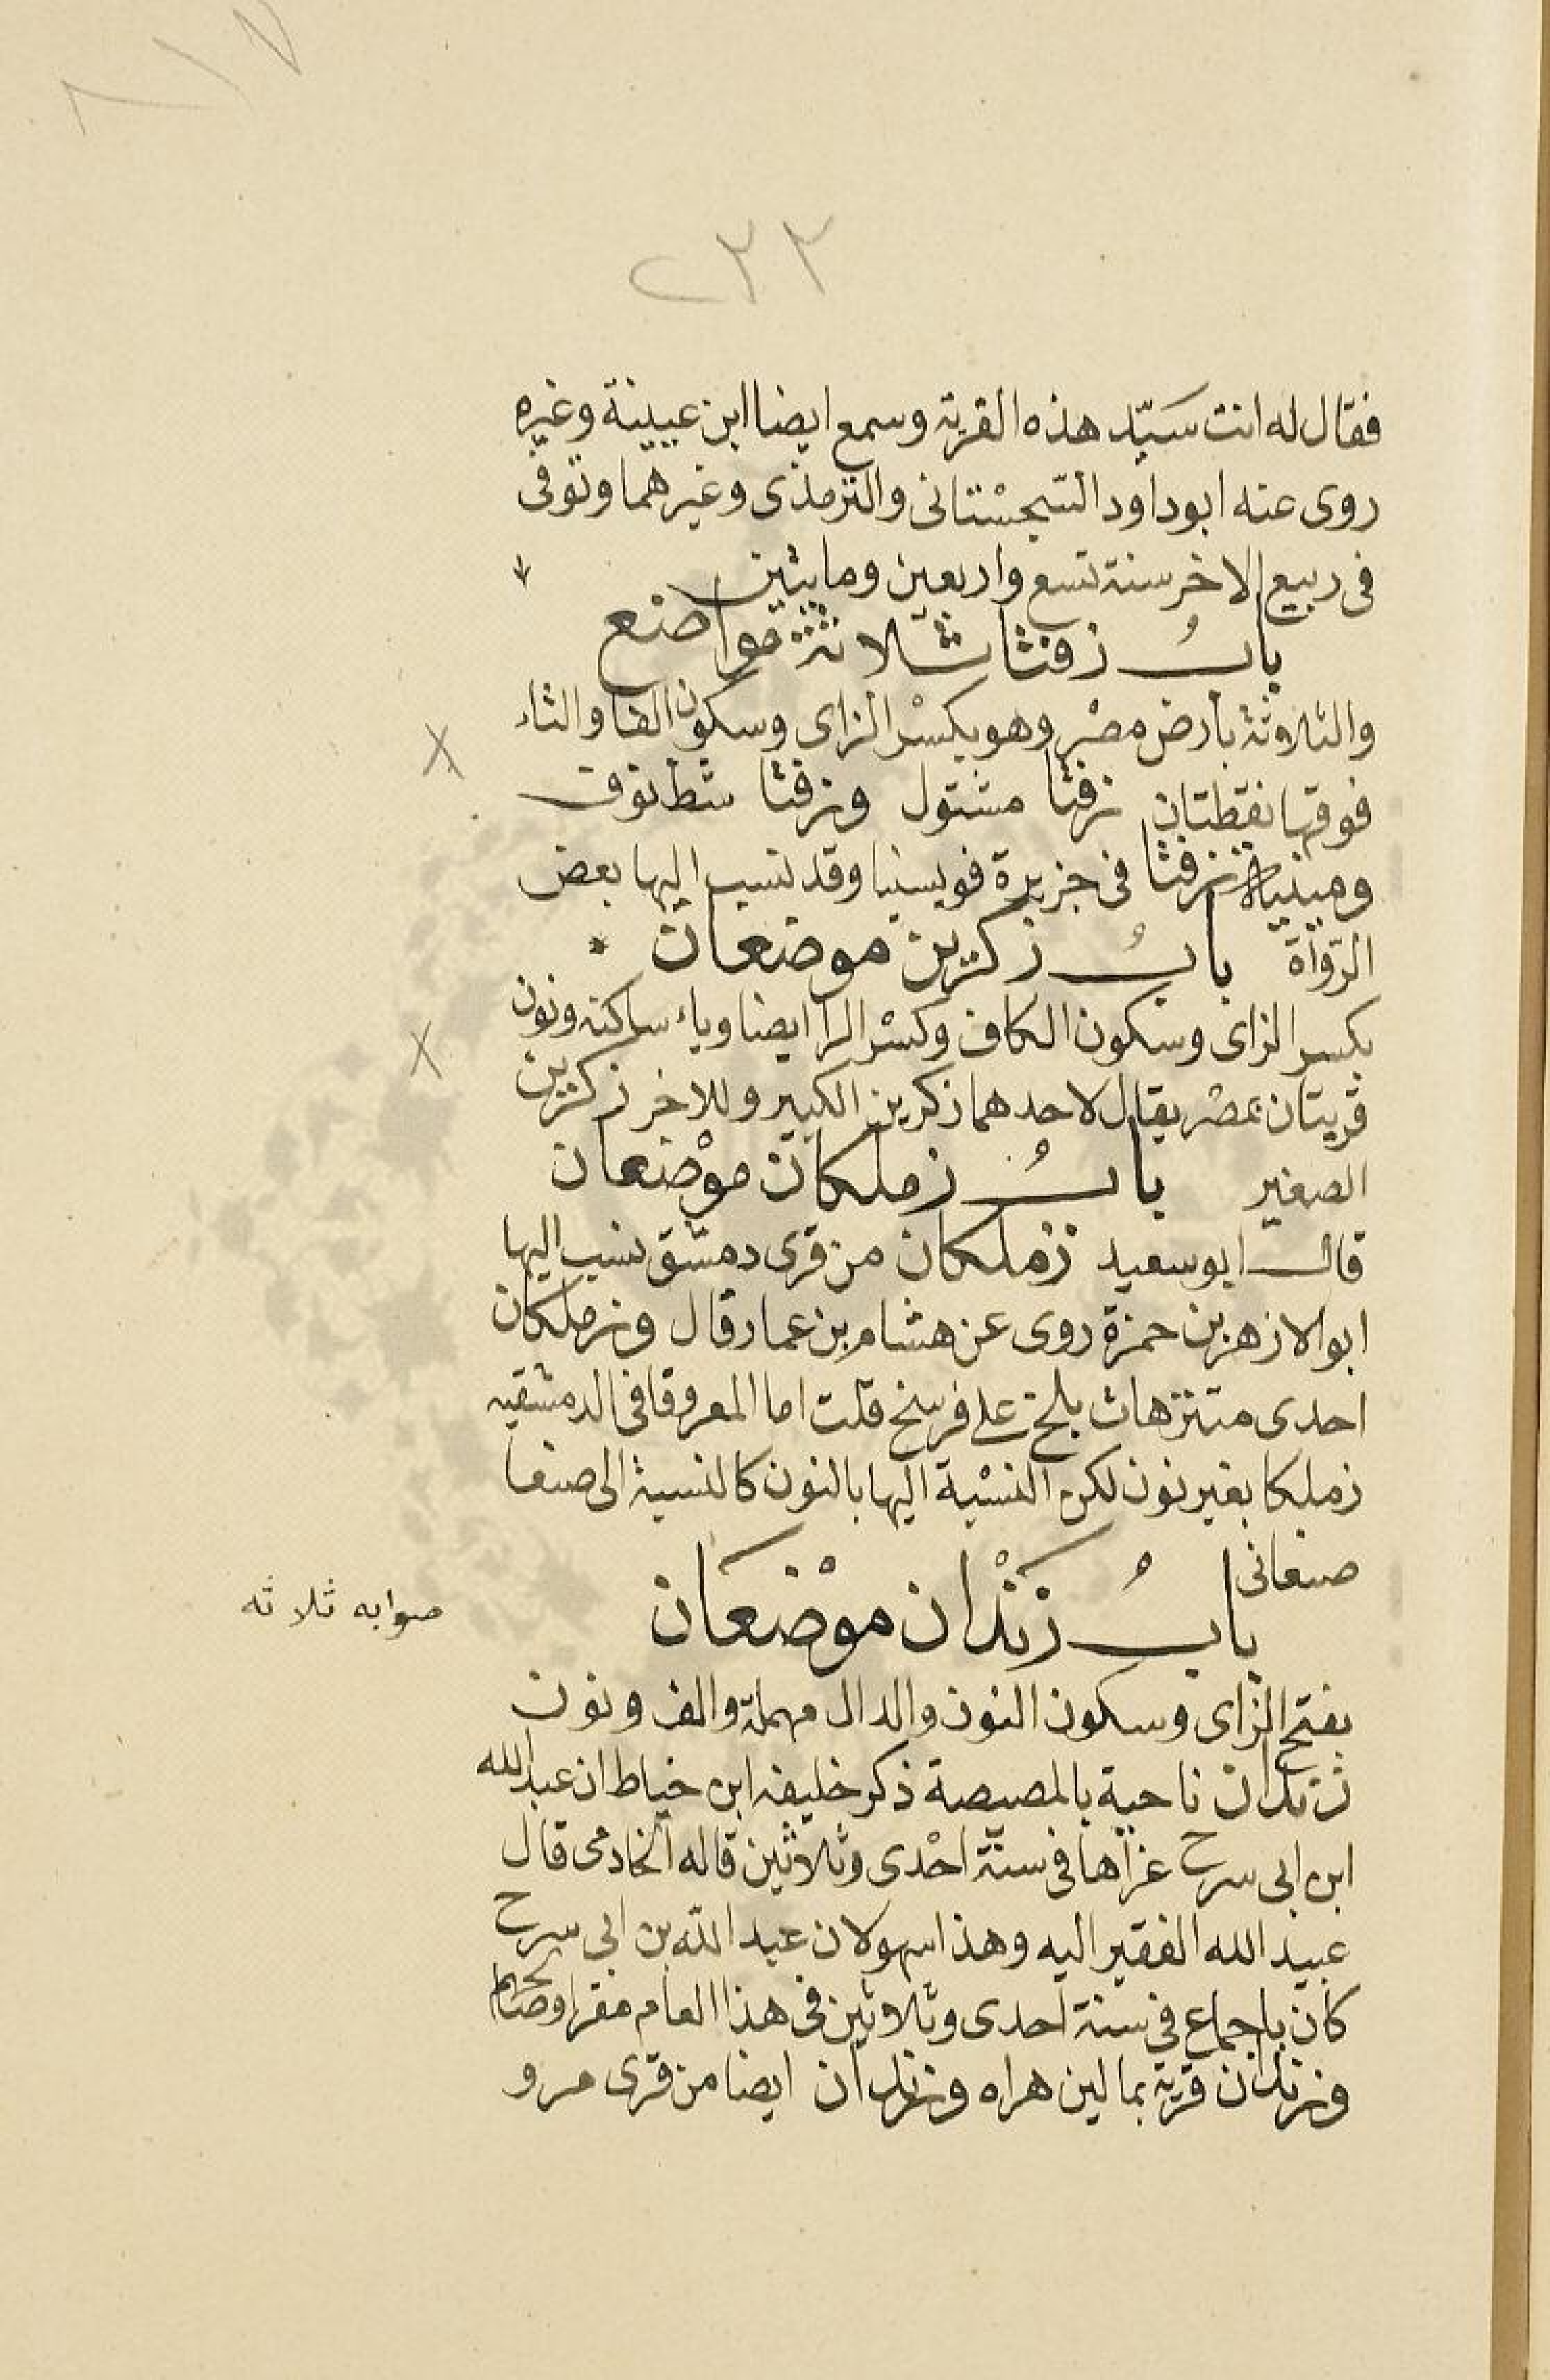 ٢٣٣
فقال له انت سَيّد هذه القرية وسمع ايضا ابن عيينة وغيره
روى عنه ابو داود السّجِسْتانى والترمذى وغيرهما وتوفى
فى ربيع الاخر سنة تسع واربعين ومايتين
بابُ زفتا ثلاثة مواضع
والثلاثة بأرض مصْر وهو بكسْر الزاى وسكون الفا والتاء
فوقها نقطتان زفتا مشتول وزفتا شطنوف
ومنية زفتا فى جزيرة قويسنيا وقد نسب اليها بعض
الرّواة بابُ زكرين موضعان
بكسر الزاى وسكون الكاف وكسْر الرا ايضا وياء ساكنة ونون
قريتان بمصْر يقال لاحدهما زكرين الكبير وللاخر زكرين
الصغير بابُ زملكان موْضعان
قال ابو سعيد زملكان من قرى دمشق نسب اليها
ابو الازهر بن حمزة روى عن هشام بن عمار قال وزملكان
احدى متنزهات بلخ على فرسخ قلت اما المعروفا فى الدمشقيه
زملكا بغير نون لكن النسْبة اليها بالنون كالنسبة الى صنعا
صنعانى
بابُ زَنْدان موْضعَان
صوابه ثلاثه
بفتح الزاى وسكون النون والدال مهملة والف ونون
زندان ناحية بالمصيصة ذكر خليفه ابن خياط ان عبد الله
ابن ابى سرح غزاها فى سنة احْدى وثلاثين قاله الحازمى قال
عبيد الله الفقير اليه وهذا سهو لان عبد الله بن ابى سرح
كان باجماع فى سنة احدى وثلاثين فى هذا العام
وزندان قرية بمالين هراه وزندان ايضا من قرى مرو